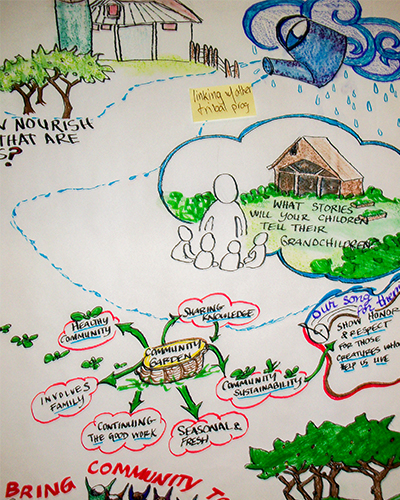 linking w/ other
tribal prog
NOURISH
THAT ARE
?
WHAT STORIES
WILL YOUR CHILDREN
TELL THEIR
GRANDCHILDREN
Our song for them
SHOW HONOR
& RESPECT
FOR THOSE
CREATURES WHO
HELP US LIVE
SHARING
KNOWLEDGE
HEALTHY
COMMUNITY
COMMUNITY
GARDEN
INVOLVES
FAMILY
COMMUNITY
SUSTAINABILITY
CONTINUING
THE GOOD WORK
SEASONAL &
FRESH
BRING COMMUNITY T